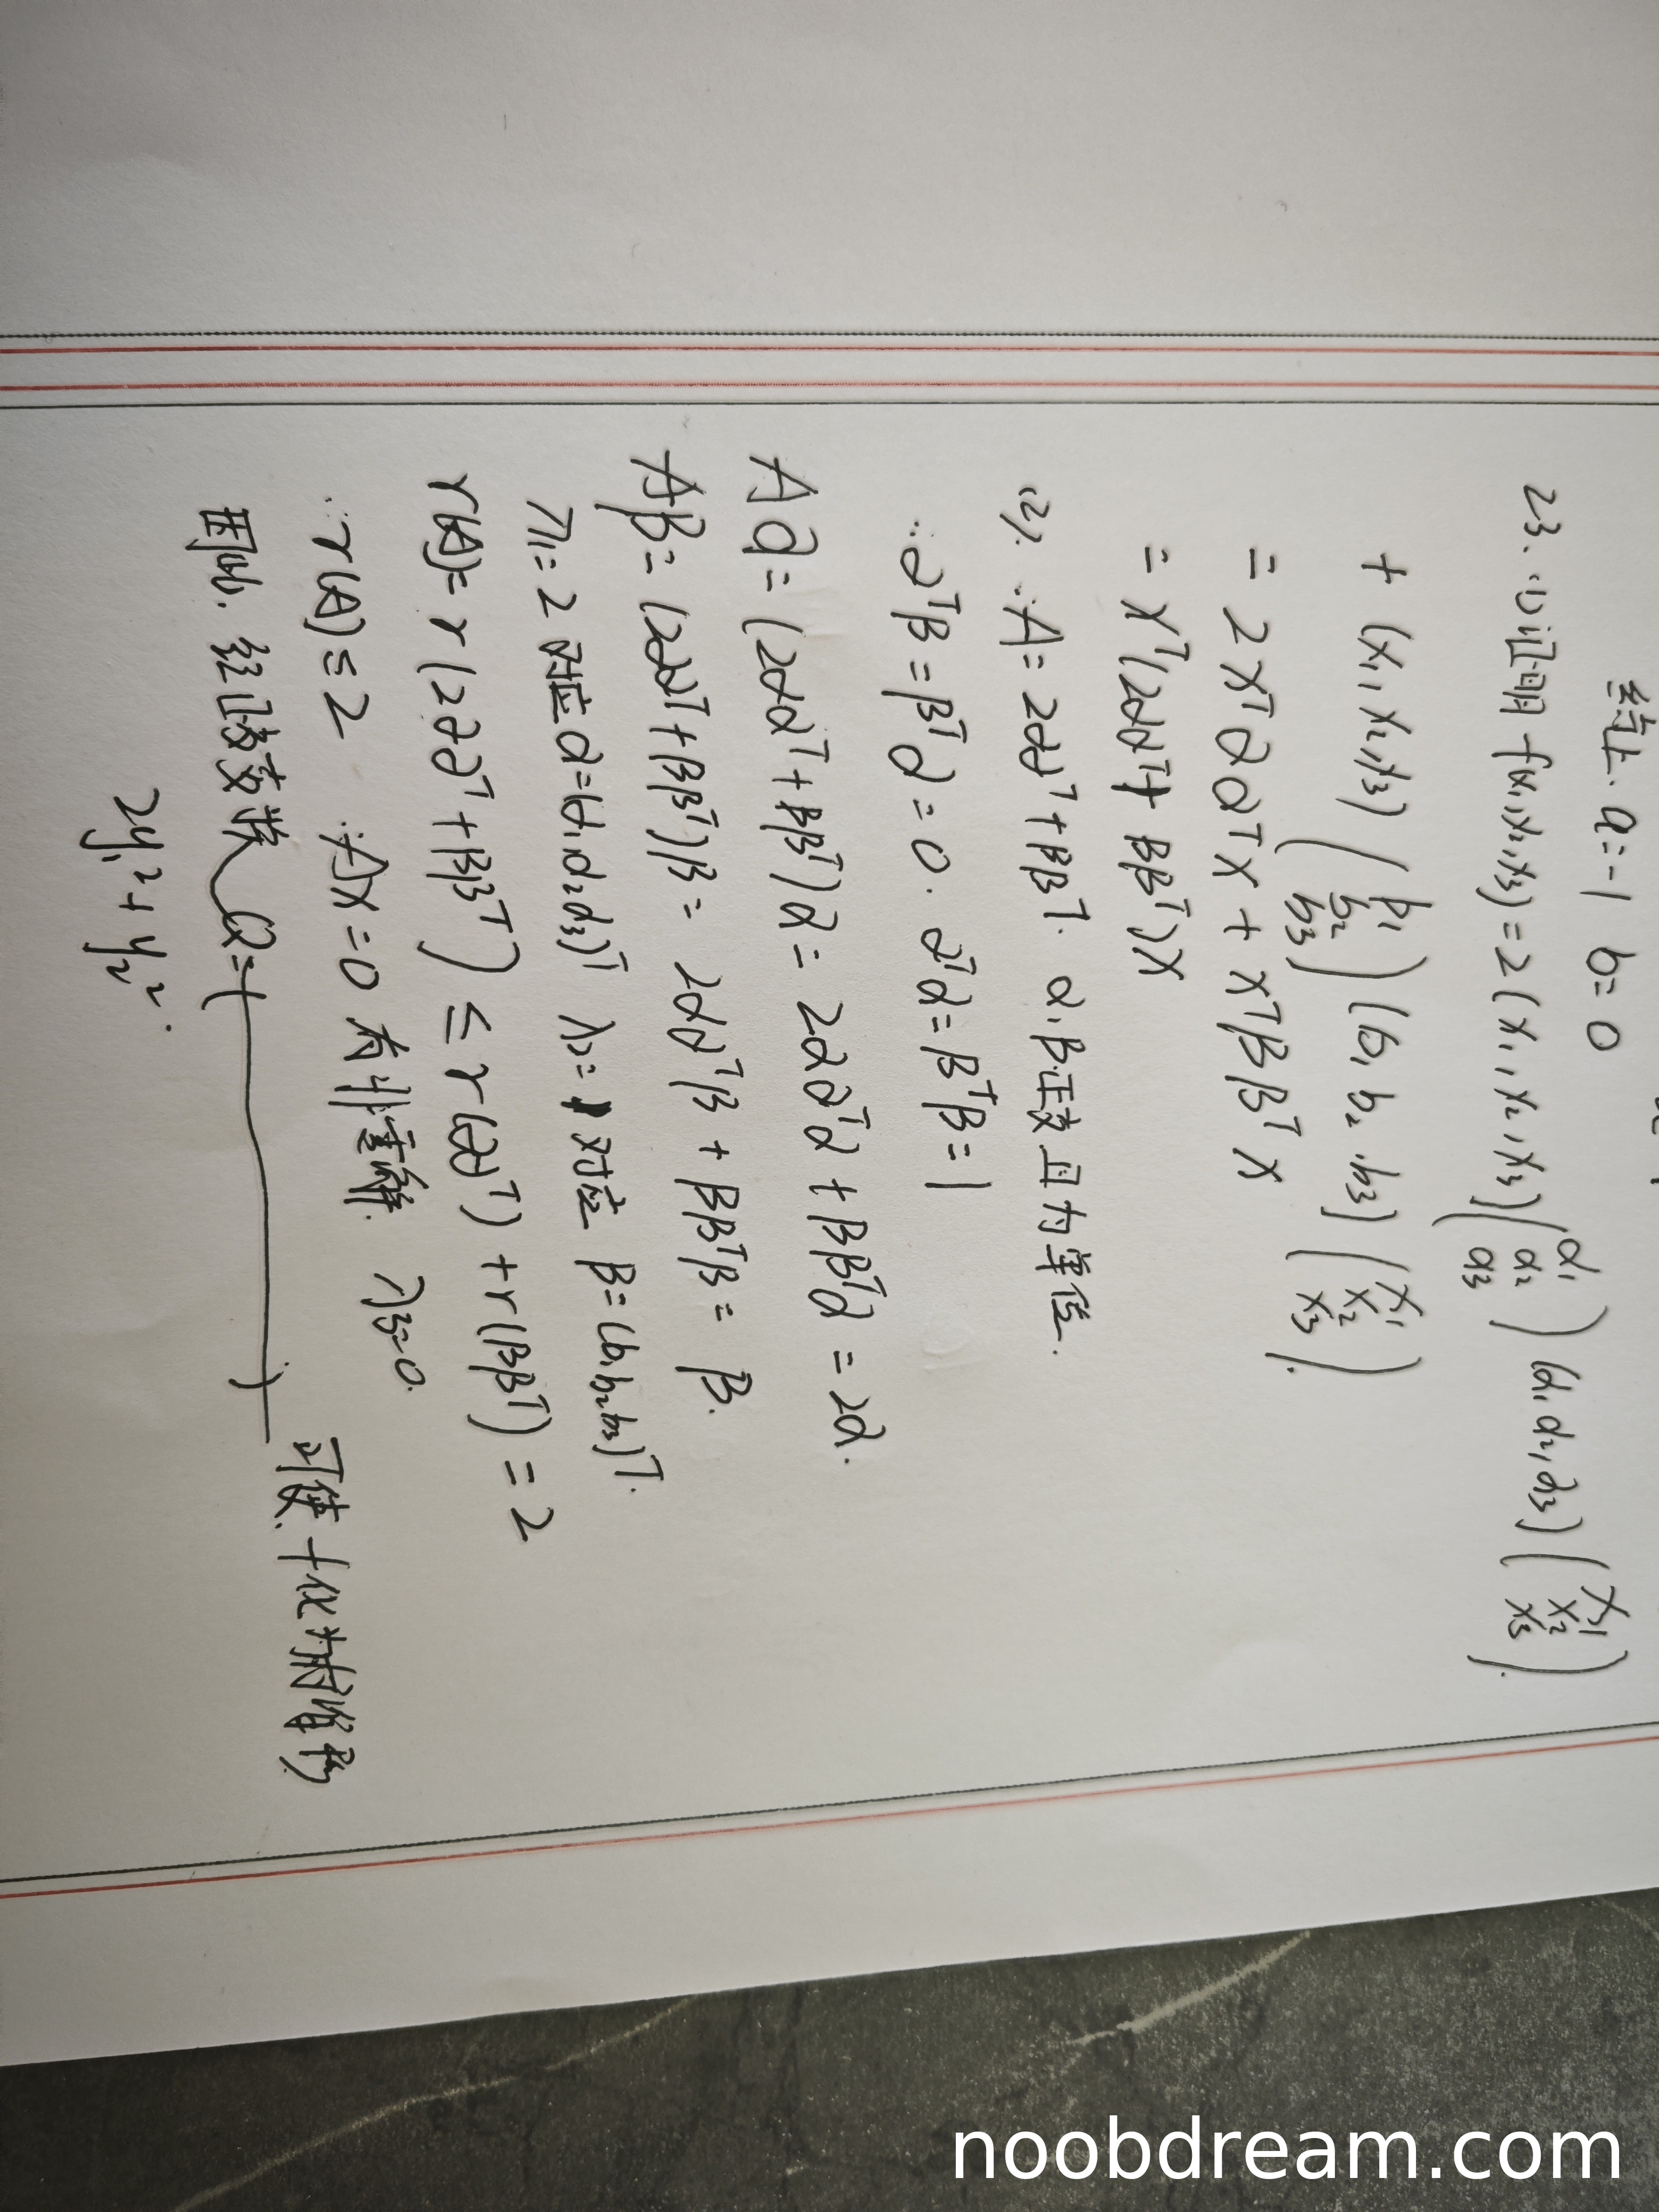 综上. a=-1 b=0
23. (1) 证明 f(x₁,x₂,x₃)=2(x₁,x₂,x₃)(a₁ a₂ a₃)(a₁,a₂,a₃)(x₁ x₂ x₃)
+ (x₁,x₂,x₃)(b₁ b₂ b₃)(b₁ b₂ b₃)(x₁ x₂ x₃).
= 2xᵀααᵀx + xᵀββᵀx
= xᵀ(2ααᵀ+ββᵀ)x
(2). ∵A=2ααᵀ+ββᵀ. α,β正交且为单位.
∴αᵀβ=βᵀα=0. αᵀα=βᵀβ=1
Aα=(2ααᵀ+ββᵀ)α=2ααᵀα+ββᵀα=2α.
Aβ=(2ααᵀ+ββᵀ)β=2ααᵀβ+ββᵀβ=β.
λ₁=2 对应 α=(a₁a₂a₃)ᵀ λ₂=1 对应 β=(b₁b₂b₃)ᵀ.
r(A)=r(2ααᵀ+ββᵀ)≤r(ααᵀ)+r(ββᵀ)=2
∴r(A)≤2 ∴Ax=0 有非零解. λ₃=0.
因此. 经 变 Q=( ) 可使 f 化为标准形
2y₁²+y₂².
noobdream.com